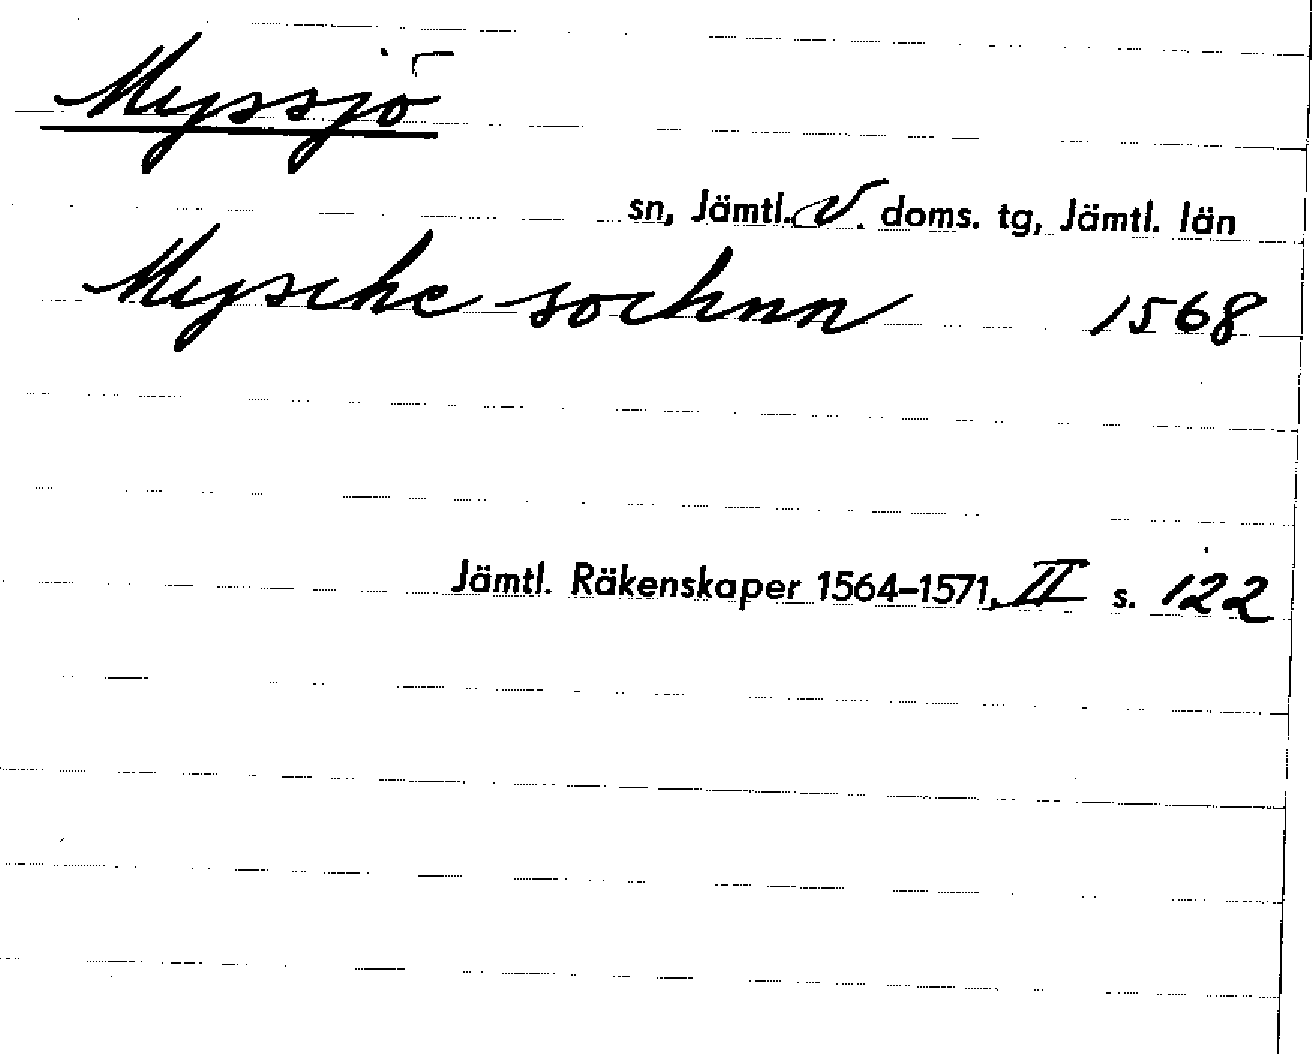 Myssjö
sn, Jämtl. V. doms. tg, Jämtl. län
Mysche sochnn 1568
Jämtl. Räkenskaper 1564–1571, II s. 122